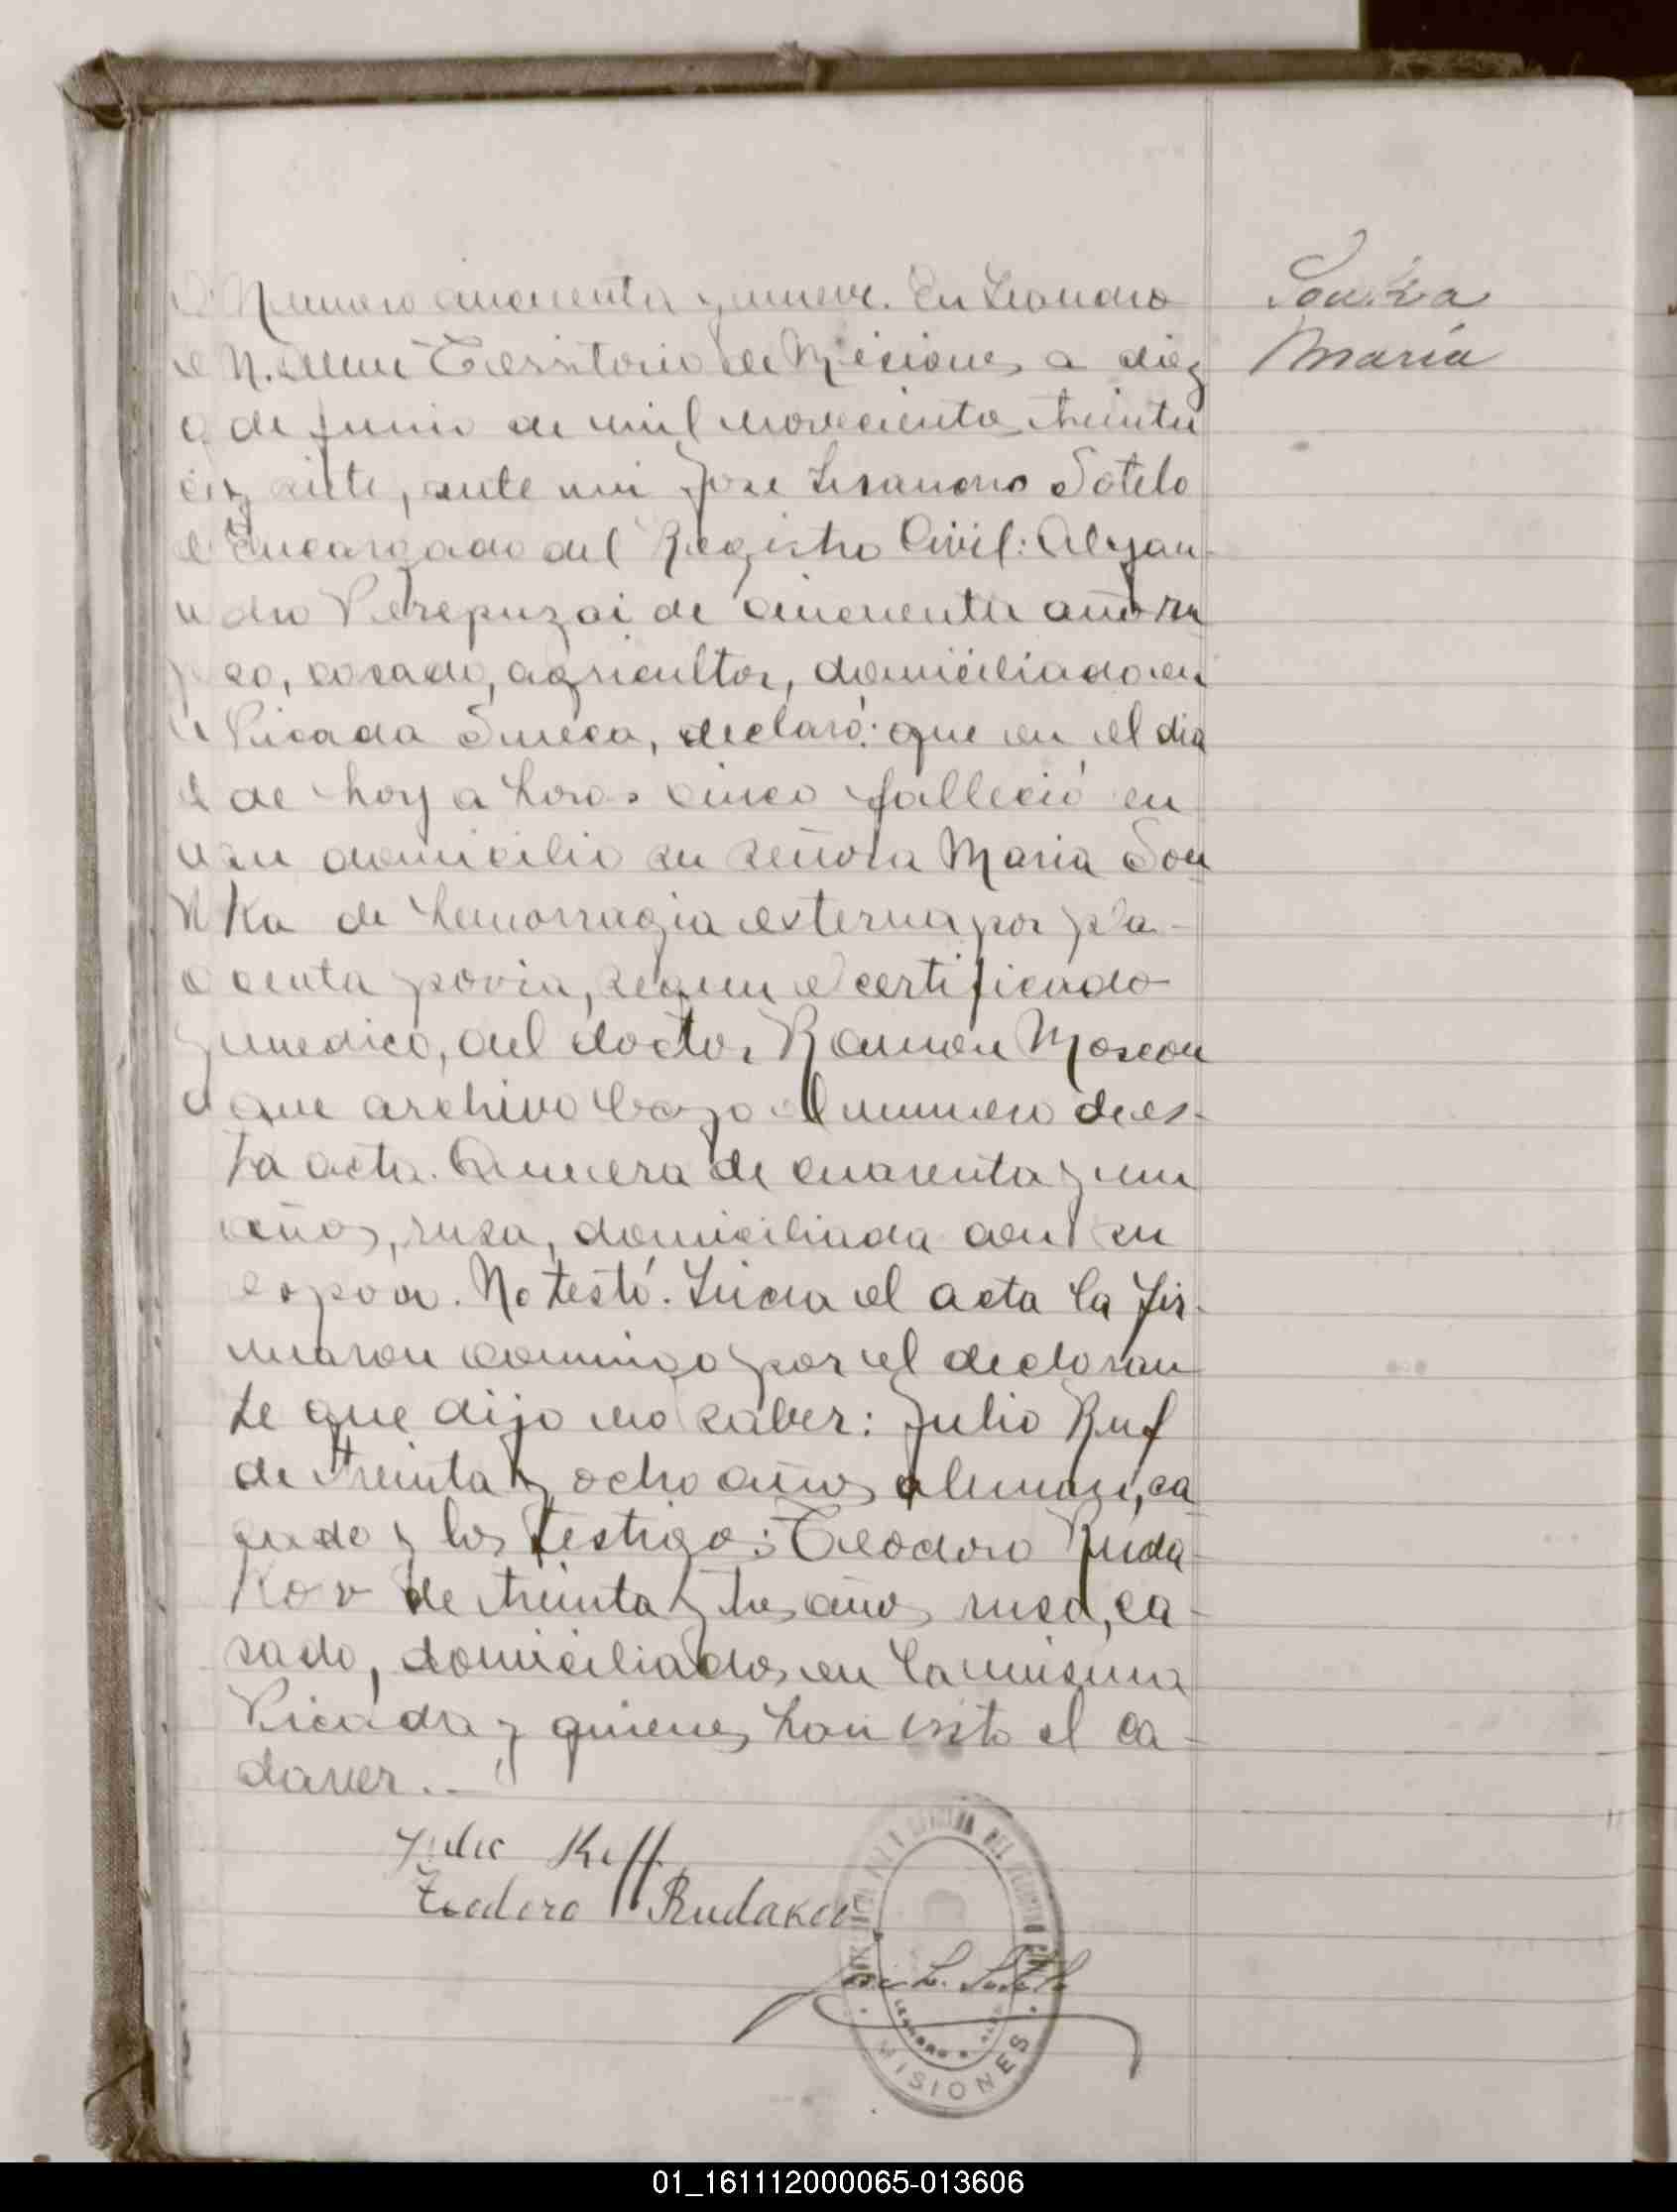 Numero cincuenta y nueve. En Leandro
N. Alem Territorio de Misiones a diez
de junio de mil novecientos treinta
y siete, ante mi Jose Lisandro Sotelo
Encargado del Registro Civil: Alejan-
dro Perepuzai de cincuenta años ru
so, casado, agricultor, domiciliado en
Picada Sueca, declaró: que en el dia
de hoy a horas cinco falleció en
su domicilio su señora Maria Sou
Ka de hemorragia externa por pla-
centa povia, segun el certificado
medico, del doctor Ramon Moscou
que archivo bajo el numero de es-
ta acta. Que era de cuarenta y un
años, rusa, domiciliada con su
esposo. No testó. Leida el acta la fir-
maron conmigo por el declaran
te que dijo no saber: Julio Ruf
de treinta y ocho años aleman, ca
sado y los testigos: Teodoro Ruda-
Kov de treinta y tres años ruso, ca-
sado, domiciliados en la misma
Picada y quienes han visto el ca-
daver..-
Julio Ruff
Teodoro Rudakov
Jose L. Sotelo
LEANDRO N. ALEM
MISIONES
Souka
Maria
01_161112000065-013606